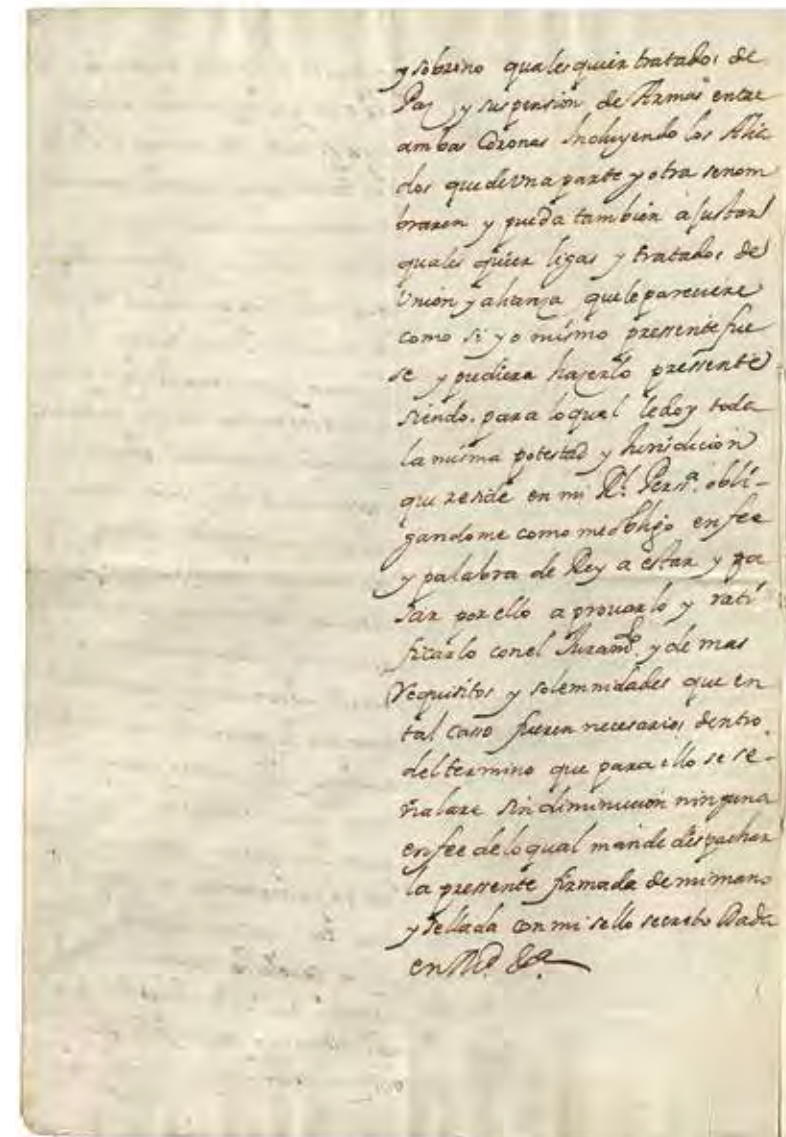 y sobrino qualesquier tratados de
Paz y suspension de Armas entre
ambas Coronas Incluyendo los Alia
dos que de Una parte y otra se nom
braren y pueda tambien ajustar
quales quier ligas y tratados de
Union y alianza que le pareciere
como si yo mismo pressente fue
se y pudiera hazerlo pressente
siendo. para lo qual le doy toda
la misma potestad y Jurisdicion
que reside en mi Rl. Persª. obli-
gandome como me obligo en fee
y palabra de Rey a estar y pa
sar por ello aprovarlo y rati
ficarlo con el Juramto. y de mas
requisitos y solemnidades que en
tal caso fueren necesarios dentro
del termino que para ello se se-
ñalare sin diminucion ninguna
en fee de lo qual mande despachar
la pressente firmada de mi mano
y sellada con mi sello secreto Dada
en Md. &ª.